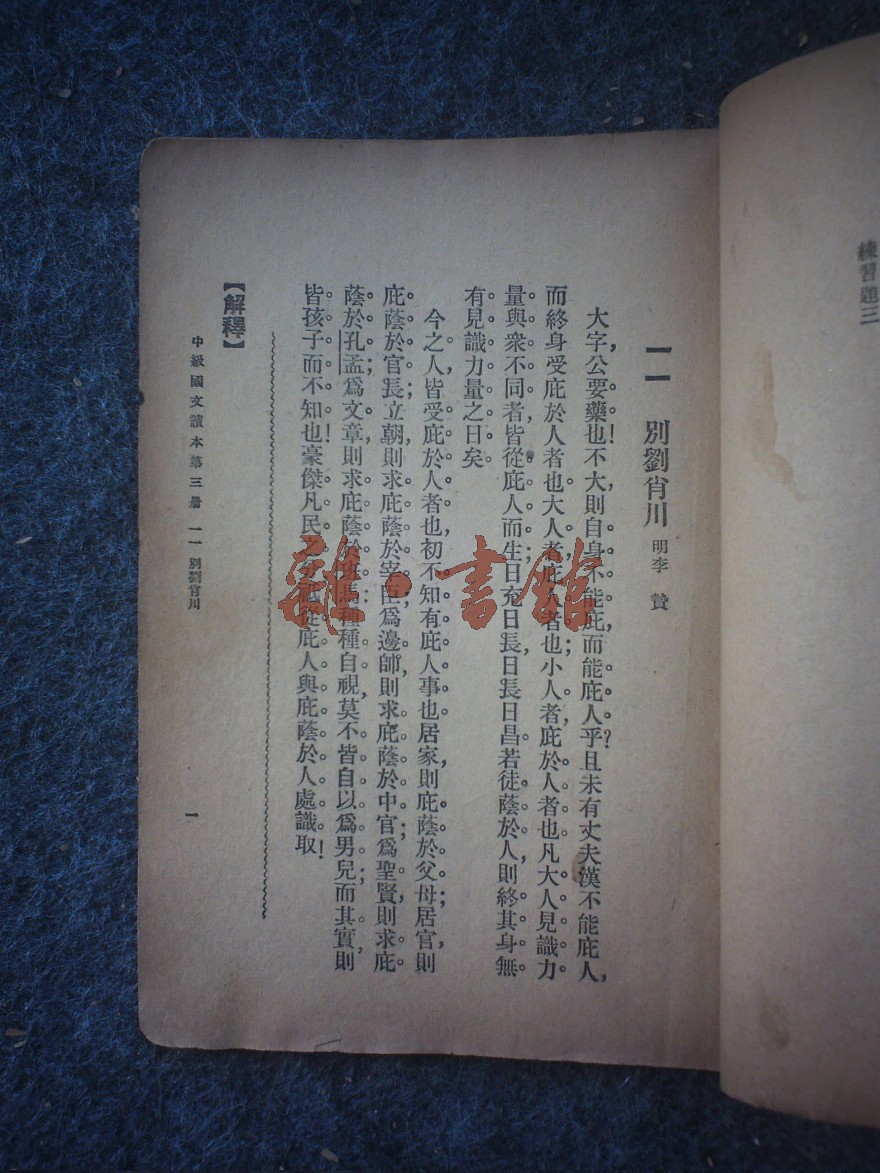 練習題三
一一 別劉肖川 明李 贄
大字，公要藥也！不大則自身不能庇，而能庇人乎？且未有丈夫漢不能庇人，
而終身受庇於人者也。大人者，庇人者也；小人者，庇於人者也。凡大人見識力
量與衆不同者，皆從庇人而生；日充日長，日長日昌。若徒蔭於人，則終其身無
有見識力量之日矣。
今之人，皆受庇於人者也，初不知有庇人事也。居家，則庇蔭於父母；居官，則
庇蔭於官長；立朝，則求庇蔭於宰臣；爲邊帥，則求庇蔭於中官；爲聖賢，則求庇
蔭於孔孟；爲文章，則求庇蔭於班馬：種種自視，莫不皆自以爲男兒；而其實，則
皆孩子而不知也！豪傑凡民之分，祗從庇人與庇蔭於人處識取！
【解釋】
中級國文讀本第三册 一一 別劉肖川 一
雜·書館